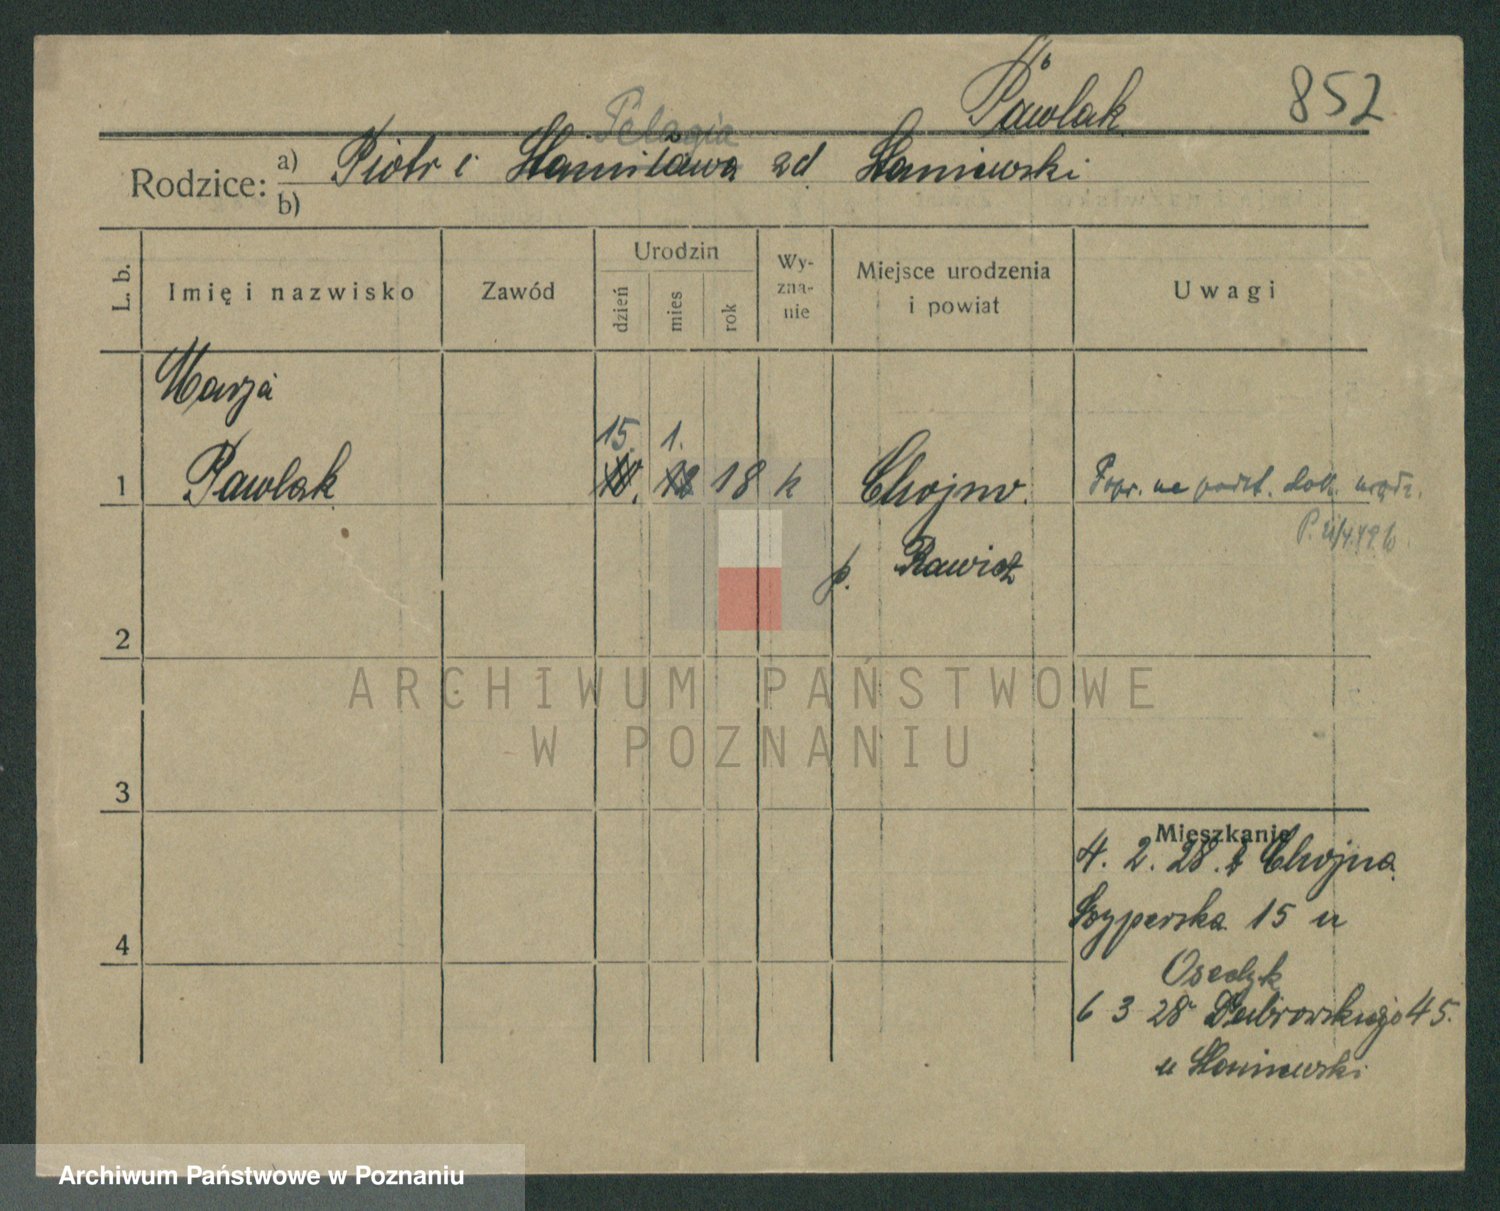 Pawlak
852
Pelagja
Rodzice: a) Piotr i Stanisława zd Staniewski
b)
L. b.
Imię i nazwisko
Zawód
Urodzin
dzień
mies
rok
Wy-
zna-
nie
Miejsce urodzenia
i powiat
Uwagi
Marja
15. 1.
1 Pawlak 18 k Chojno. Popr. na podst. dok. urodz.
p. Rawicz
2
3
4
ARCHIWUM PAŃSTWOWE
W POZNANIU
Mieszkanie
4. 2. 28. z Chojna
Szyperska 15 u
Osedzk
6 3 28 Dąbrowskiego 45.
u Staniewski
Archiwum Państwowe w Poznaniu